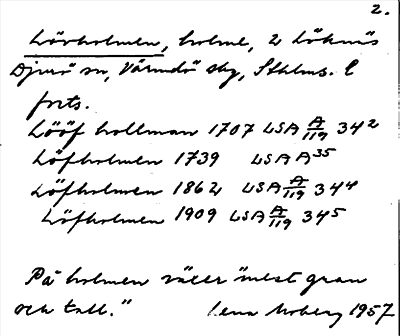 2.
Lövholmen, holme, 2 Löknäs
Djurö sn, Värmdö skg, Sthlms. l
forts.
Lööf hollman 1707 LSA A/119 34²
Löfholmen 1739 LSA A³⁵
Löfholmen 1862 LSA A/119 34⁴
Löfholmen 1909 LSA A/119 34⁵
På holmen växer "mest gran
och tall." Lena Moberg 1957